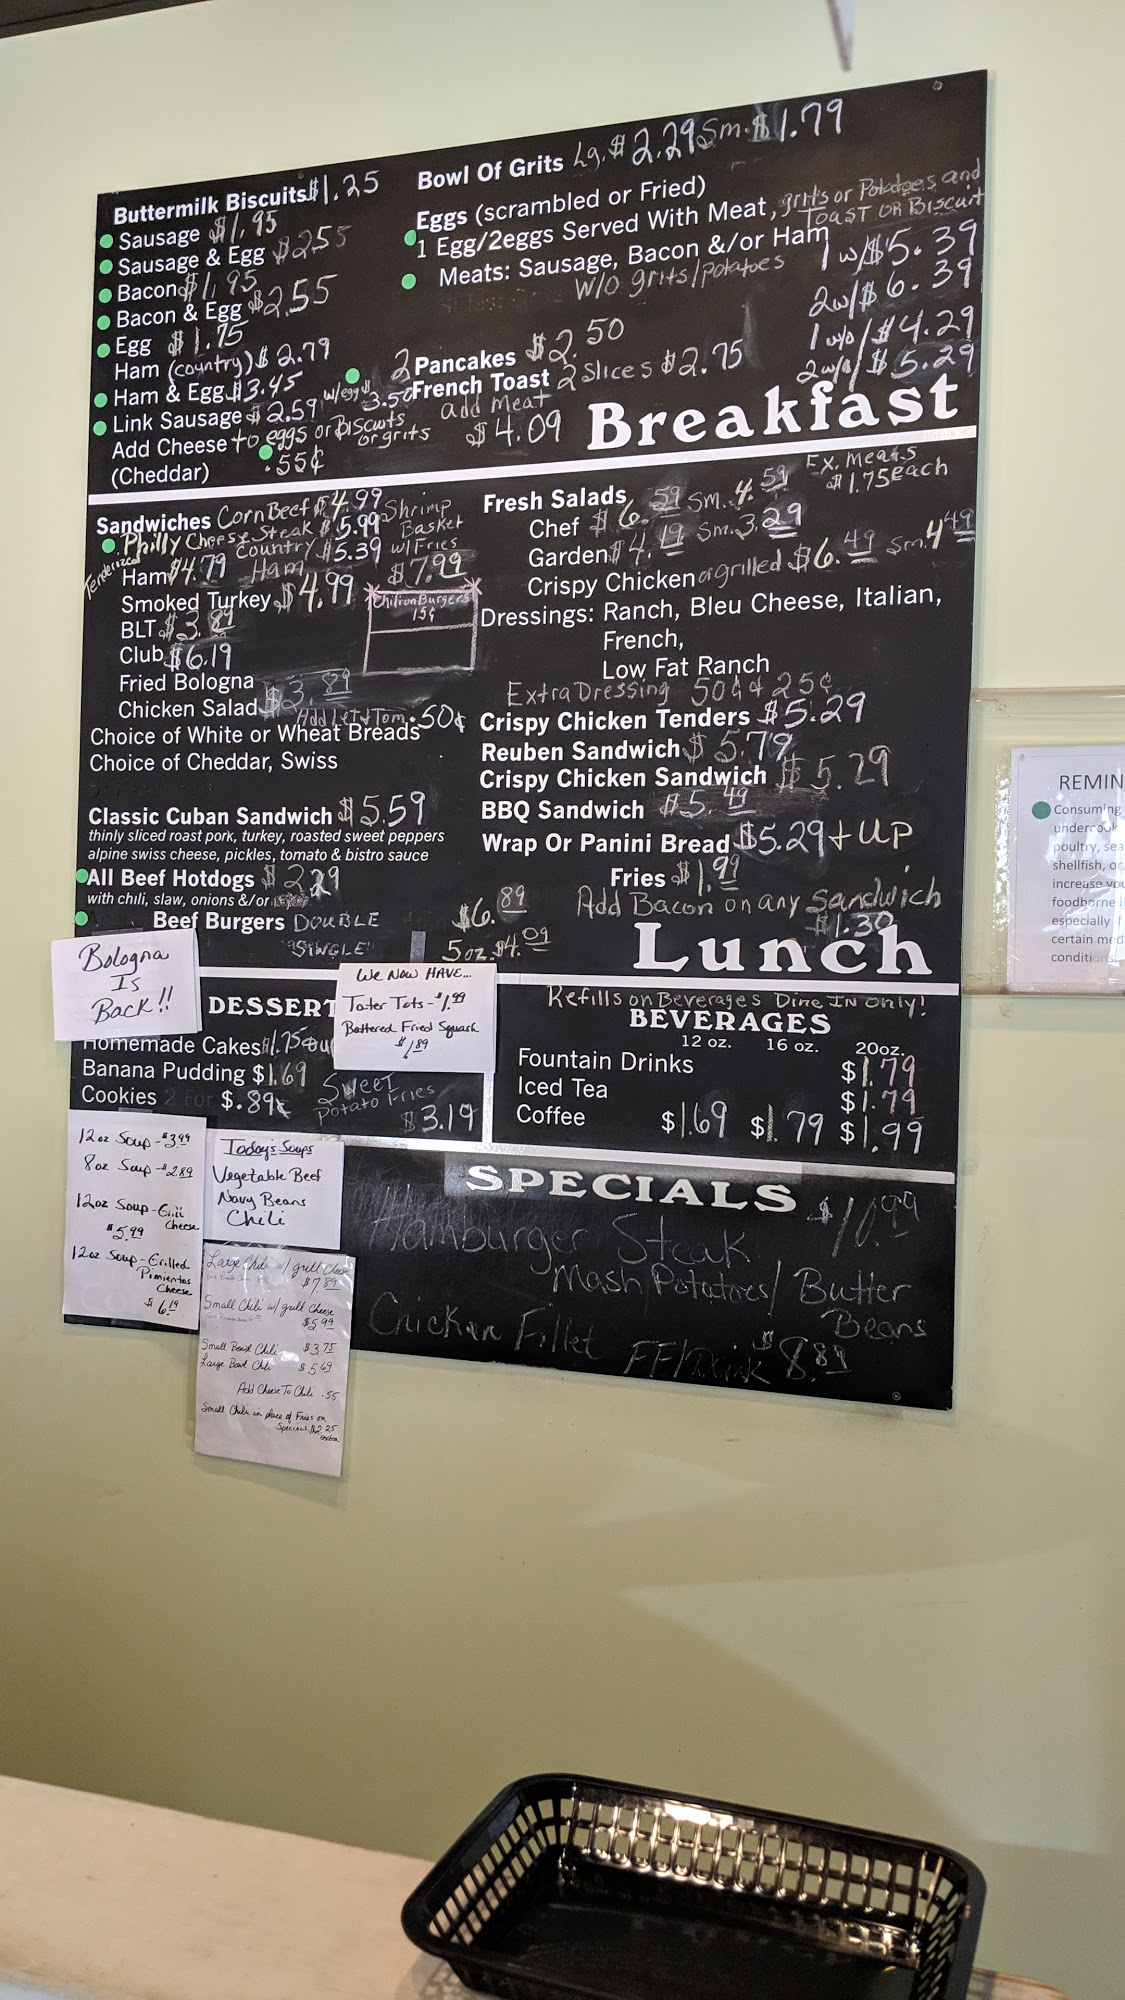 Buttermilk Biscuits $1.25
Sausage $1.95
Sausage & Egg $2.55
Bacon $1.95
Bacon & Egg $2.55
Egg $1.75
Ham (country) $2.79
Ham & Egg $3.45
Link Sausage $2.59 w/egg $3.50
Add Cheese to eggs or Biscuits or grits
(Cheddar) .55¢
Bowl Of Grits Lg. $2.29 Sm. $1.79
Eggs (scrambled or Fried)
1 Egg/2eggs Served With Meat, grits or Potatoes and
TOAST OR Biscuit
Meats: Sausage, Bacon &/or Ham
W/O grits/potatoes
1 w/$5.39
2 w/$6.39
1 w/o/$4.29
2 w/o/$5.29
2 Pancakes $2.50
French Toast 2 Slices $2.75
add Meat
$4.09
Breakfast
Sandwiches Corn Beef $4.99
Philly Cheese Steak $5.99
Tenderized
Country Ham $5.39
Shrimp
Basket
w/Fries
$7.99
Ham $4.79
Smoked Turkey $4.99
BLT $3.89
Club $6.19
Fried Bologna
Chicken Salad $3.89
Add Let & Tom. .50¢
Chili on Burgers
75¢
Choice of White or Wheat Breads
Choice of Cheddar, Swiss
Classic Cuban Sandwich $5.59
thinly sliced roast pork, turkey, roasted sweet peppers
alpine swiss cheese, pickles, tomato & bistro sauce
All Beef Hotdogs $2.29
with chili, slaw, onions &/or
Beef Burgers DOUBLE $6.89
"SINGLE" 5oz. $4.09
Ex. Meats
$1.75 each
Fresh Salads
Chef $6.59 Sm. 4.59
Garden $4.19 Sm. 3.29
Crispy Chicken or grilled $6.49 Sm. 4.49
Dressings: Ranch, Bleu Cheese, Italian,
French,
Low Fat Ranch
Extra Dressing 50¢ & 25¢
Crispy Chicken Tenders $5.29
Reuben Sandwich $5.79
Crispy Chicken Sandwich $5.29
BBQ Sandwich $5.49
Wrap Or Panini Bread $5.29 + UP
Fries $1.99
Add Bacon on any Sandwich
$1.30
Lunch
Bologna
Is
Back!!
We NOW HAVE...
Tater Tots - $1.99
Battered Fried Squash
$1.89
DESSERT
Homemade Cakes $1.75
Banana Pudding $1.69
Cookies 2 For $.89¢
Sweet
Potato Fries
$3.19
Refills on Beverages Dine IN Only!
BEVERAGES
12 oz. 16 oz. 20oz.
Fountain Drinks $1.79
Iced Tea $1.79
Coffee $1.69 $1.79 $1.99
12oz Soup - $3.99
8oz Soup - $2.89
12oz Soup - Grill
Cheese
$5.99
12oz Soup - Grilled
Pimientos
Cheese
$6.19
Today's Soups
Vegetable Beef
Navy Beans
Chili
Large Chili w/ grill Cheese
$7.89
Small Chili w/ grill Cheese
$5.99
Small Bowl Chili $3.75
Large Bowl Chili $5.69
Add Cheese To Chili .55
Small Chili in place of Fries on
Specials $2.25
extra
SPECIALS
Hamburger Steak $10.99
Mash Potatoes/ Butter
Beans
Chicken Fillet FF/Drink $8.89
REMIN
Consuming
undercook
poultry, sea
shellfish, or
increase you
foodborne i
especially if
certain med
conditions